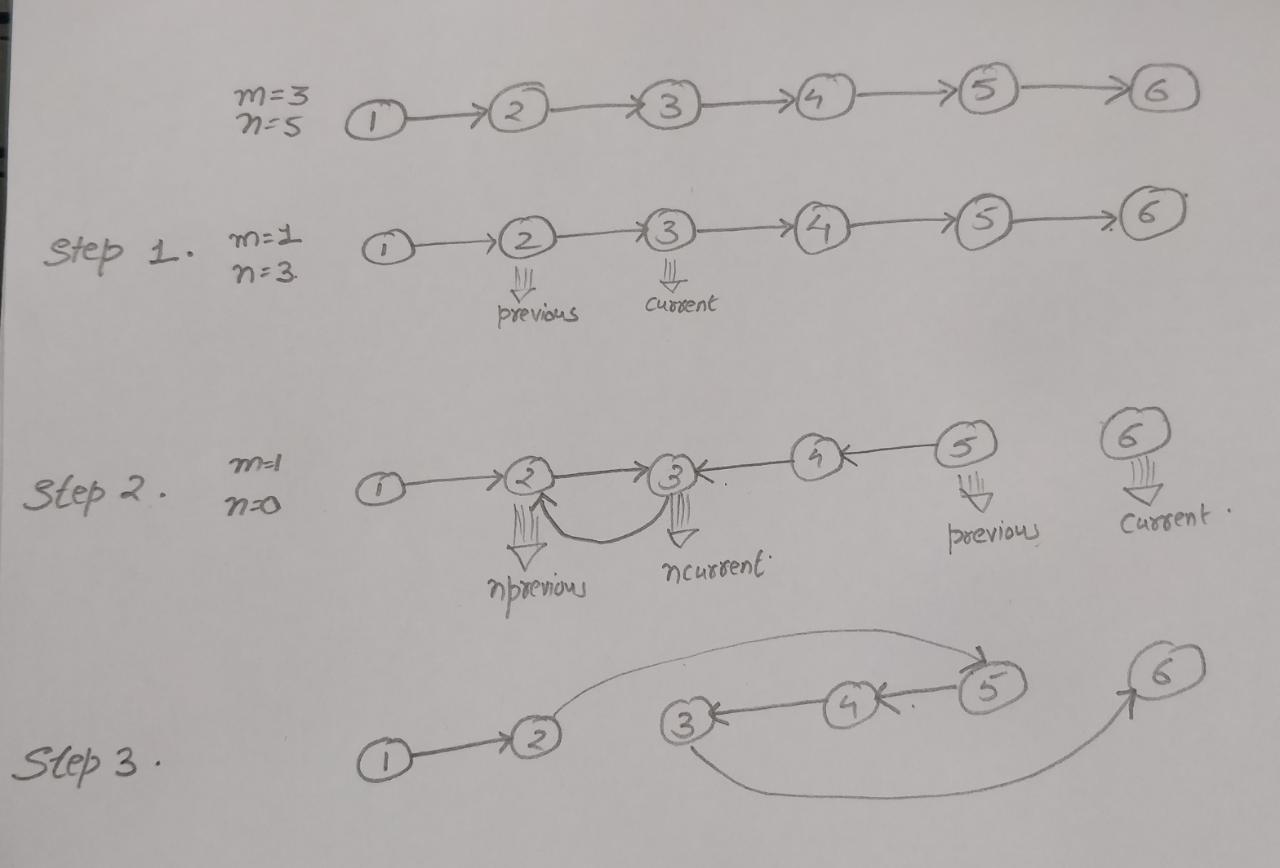 m=3
n=5
1 2 3 4 5 6
Step 1. m=1
n=3.
1 2 3 4 5 6
previous current
Step 2. m=1
n=0
1 2 3 4 5 6
nprevious ncurrent. previous current.
1 2 3 4 5 6
Step 3.